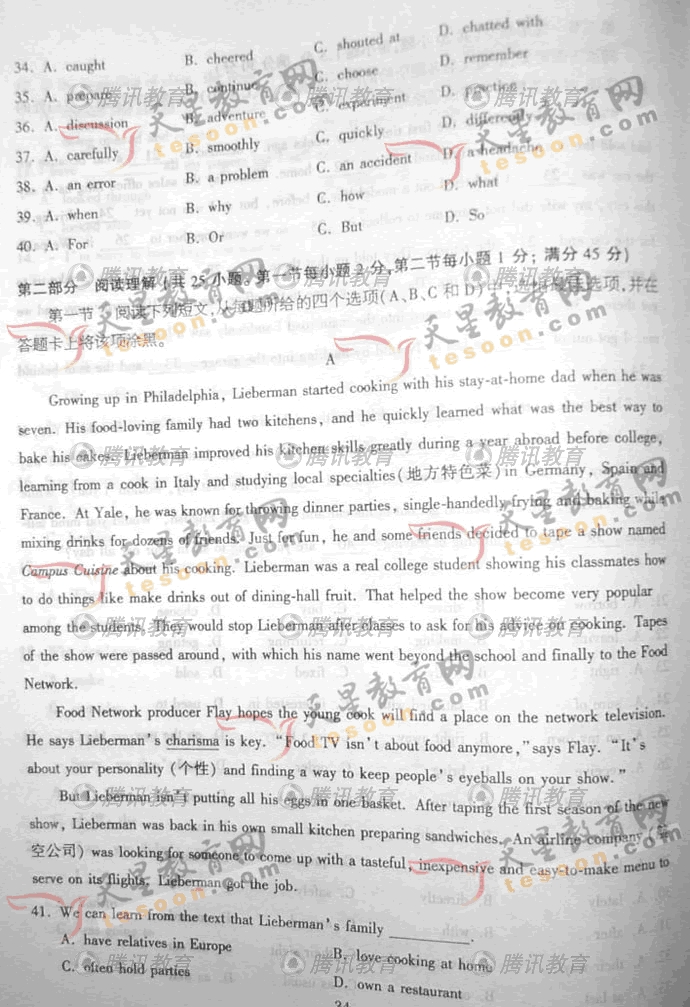 34. A. caught B. cheered C. shouted at D. chatted with
35. A. prepare B. continue C. choose D. remember
36. A. discussion B. adventure C. experiment D. practice
37. A. carefully B. smoothly C. quickly D. differently
38. A. an error B. a problem C. an accident D. a headache
39. A. when B. why C. how D. what
40. A. For B. Or C. But D. So
第二部分 阅读理解(共25小题。第一节每小题2分,第二节每小题1分;满分45分)
第一节 阅读下列短文,从每题所给的四个选项(A、B、C和D)中,选出最佳选项,并在
答题卡上将该项涂黑。
A
Growing up in Philadelphia, Lieberman started cooking with his stay-at-home dad when he was
seven. His food-loving family had two kitchens, and he quickly learned what was the best way to
bake his cakes. Lieberman improved his kitchen skills greatly during a year abroad before college,
learning from a cook in Italy and studying local specialties(地方特色菜) in Germany, Spain and
France. At Yale, he was known for throwing dinner parties, single-handedly frying and baking while
mixing drinks for dozens of friends. Just for fun, he and some friends decided to tape a show named
Campus Cuisine about his cooking. Lieberman was a real college student showing his classmates how
to do things like make drinks out of dining-hall fruit. That helped the show become very popular
among the students. They would stop Lieberman after classes to ask for his advice on cooking. Tapes
of the show were passed around, with which his name went beyond the school and finally to the Food
Network.
Food Network producer Flay hopes the young cook will find a place on the network television.
He says Lieberman's charisma is key. "Food TV isn't about food anymore," says Flay. "It's
about your personality (个性) and finding a way to keep people's eyeballs on your show."
But Lieberman isn't putting all his eggs in one basket. After taping the first season of the new
show, Lieberman was back in his own small kitchen preparing sandwiches. An airline company (航
空公司) was looking for someone to come up with a tasteful, inexpensive and easy-to-make menu to
serve on its flights. Lieberman got the job.
41. We can learn from the text that Lieberman's family ________.
A. have relatives in Europe B. love cooking at home
C. often hold parties D. own a restaurant
34
腾讯教育
天星教育网
tesoon.com